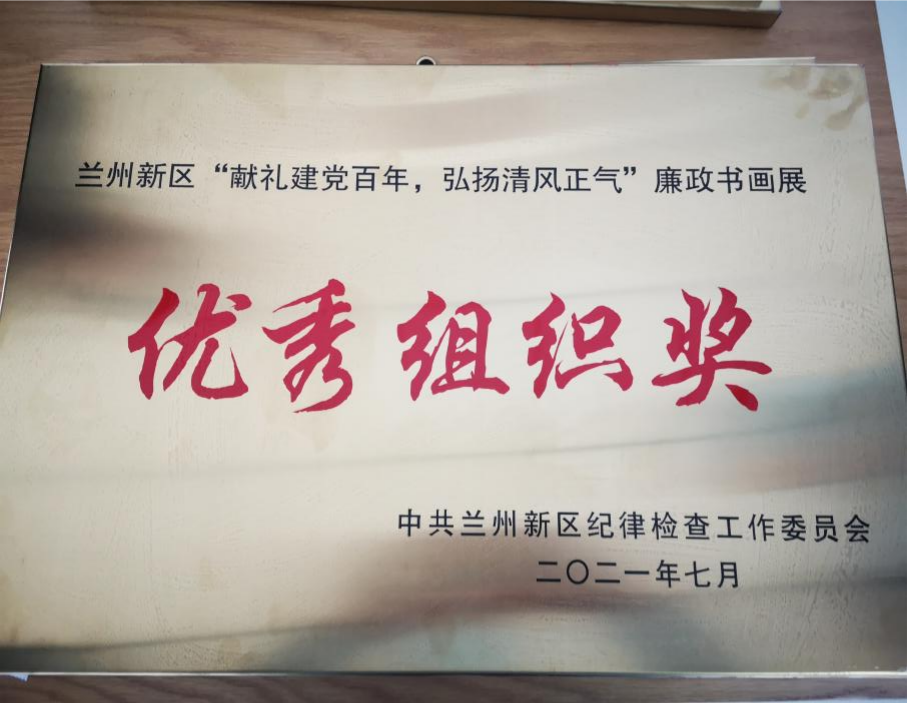 兰州新区“献礼建党百年，弘扬清风正气”廉政书画展
优秀组织奖
中共兰州新区纪律检查工作委员会
二〇二一年七月